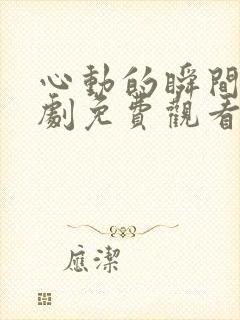 心動的瞬間
劇免費觀看
應潔